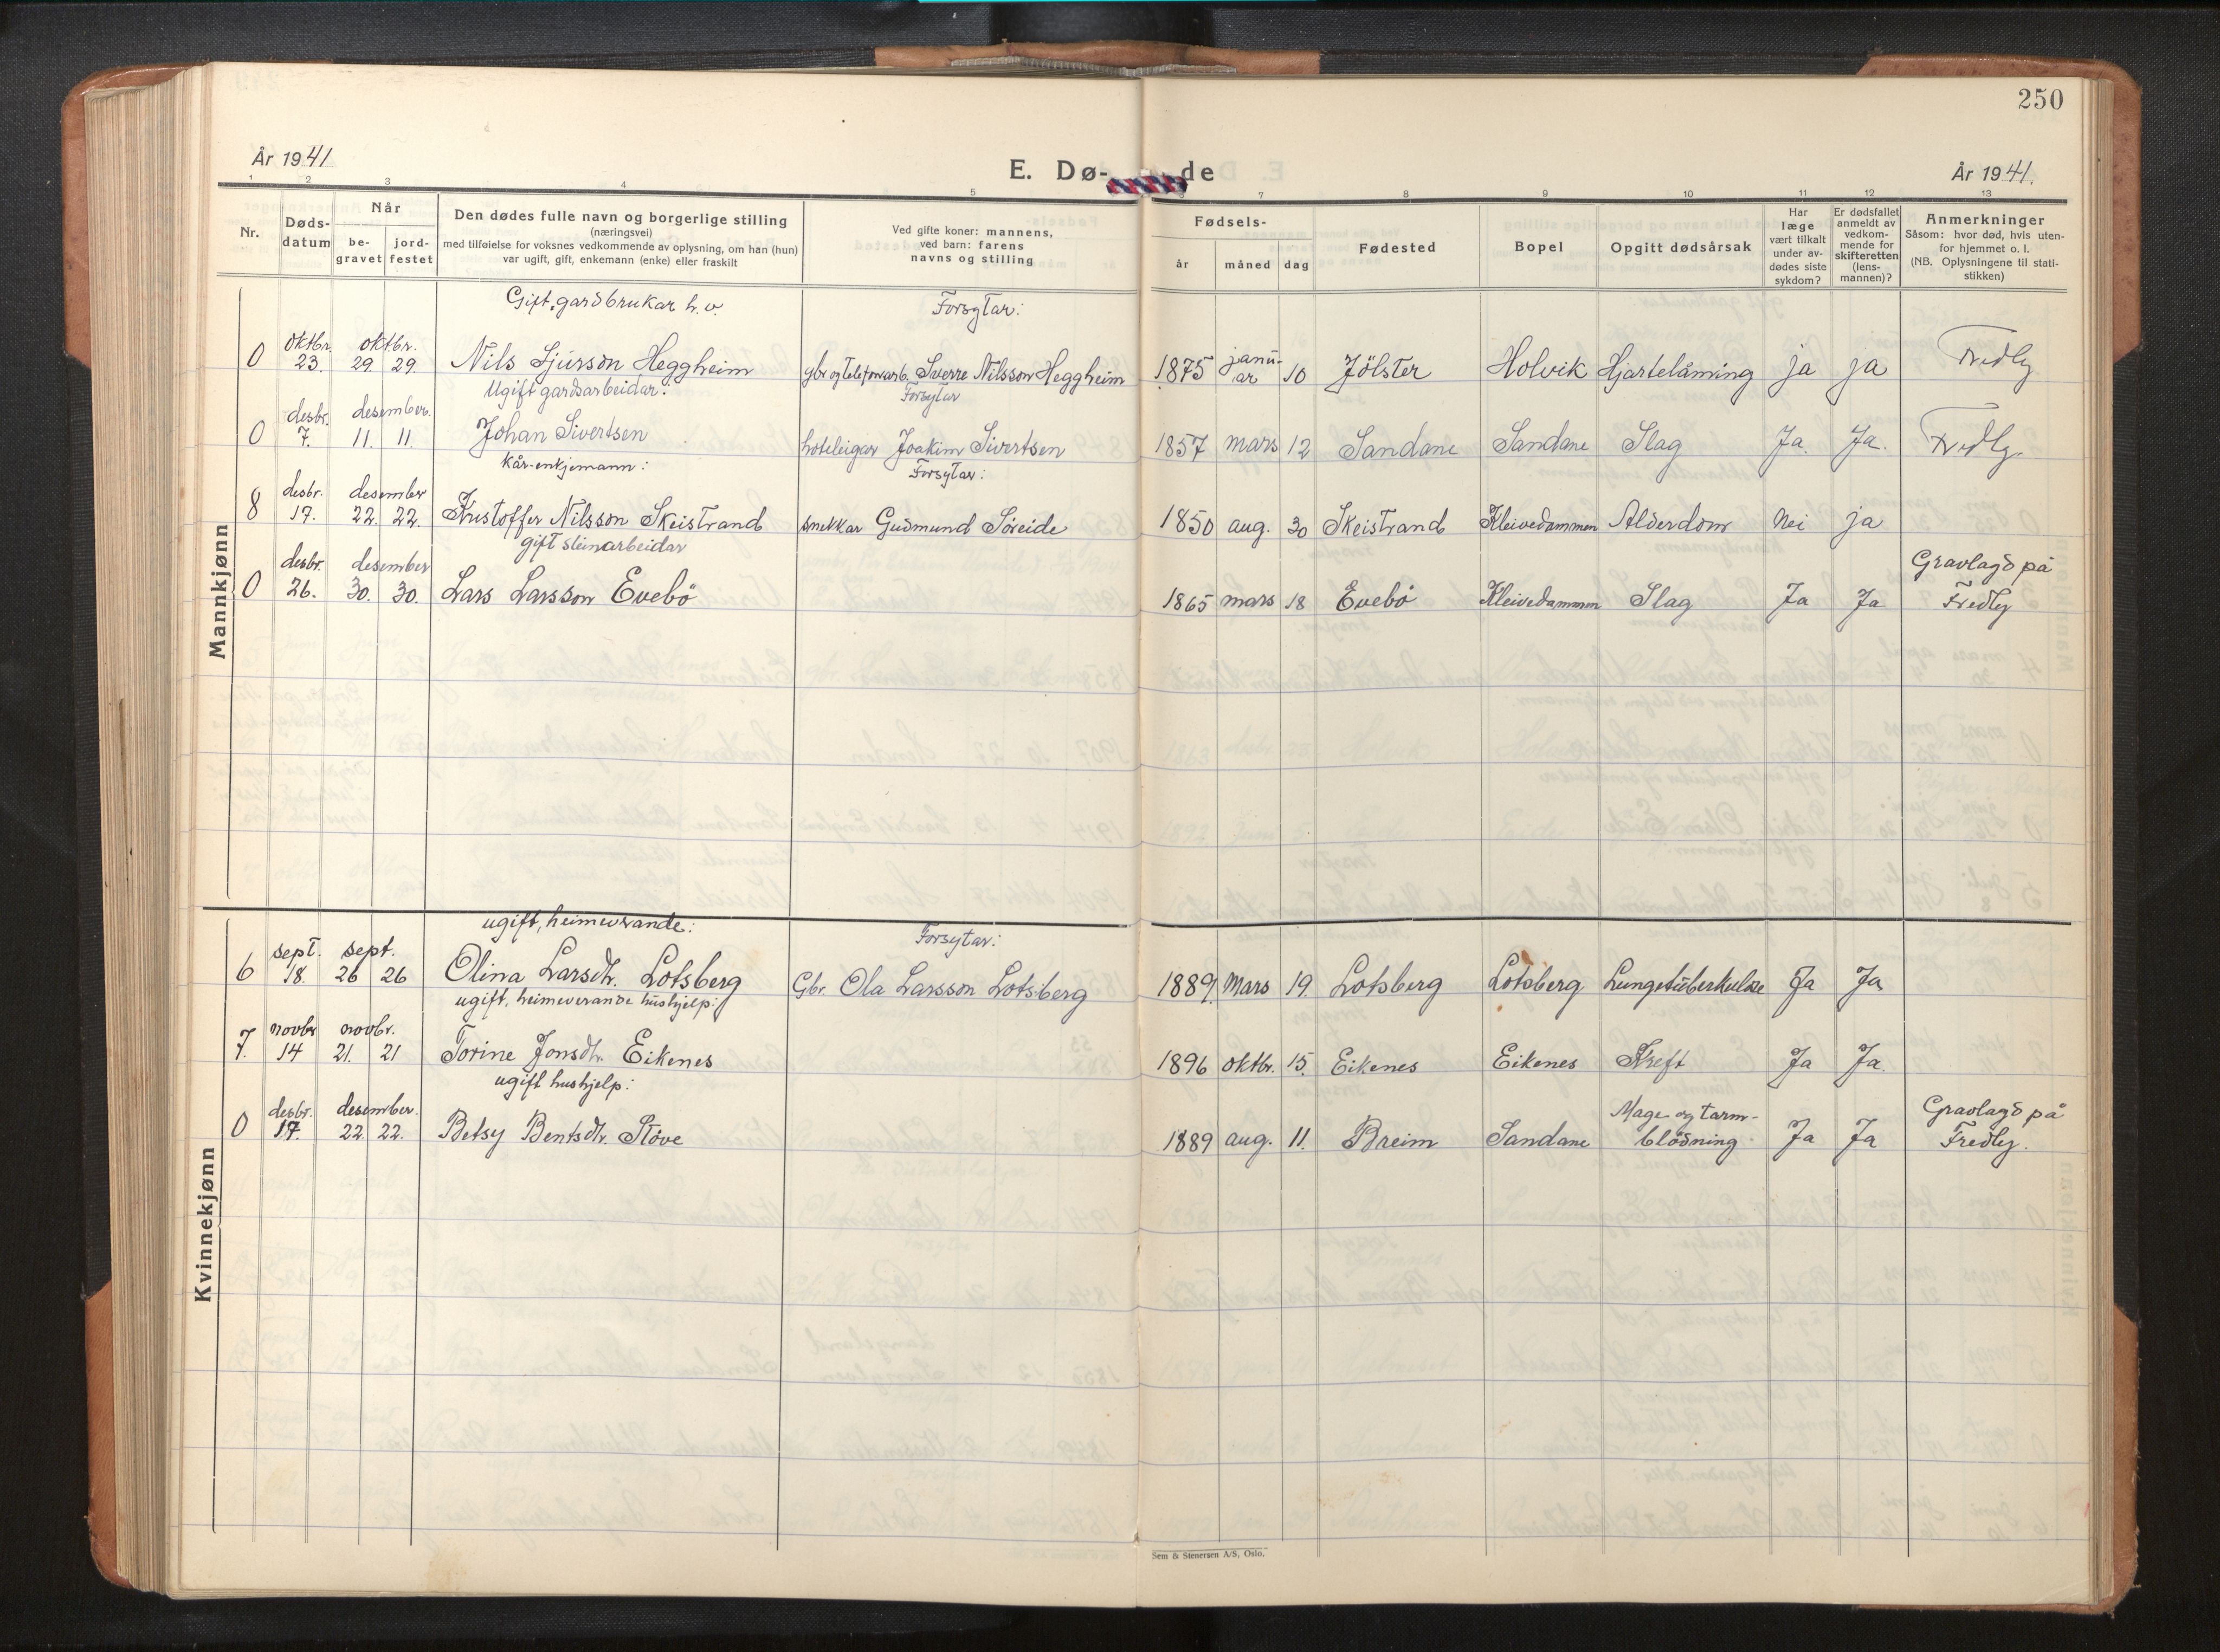 250
År 1941
E. Dø-
de
År 1941.
1 2 3 4 5 7 8 9 10 11 12 13
Nr.
Døds-
datum
Når
be-
gravet
jord-
festet
Den dødes fulle navn og borgerlige stilling
(næringsvei)
med tilføielse for voksnes vedkommende av oplysning, om han (hun)
var ugift, gift, enkemann (enke) eller fraskilt
Ved gifte koner: mannens,
ved barn: farens
navns og stilling
Fødsels-
år
måned
dag
Fødested
Bopel
Opgitt dødsårsak
Har
læge
vært tilkalt
under av-
dødes siste
sykdom?
Er dødsfallet
anmeldt av
vedkom-
mende for
skifteretten
(lens-
mannen)?
Anmerkninger
Såsom: hvor død, hvis uten-
for hjemmet o. l.
(NB. Oplysningene til stati-
stikken)
Mannkjønn
Gift, gardbrukar h.v. Forsytar:
oktbr. oktbr. janu-
0 23. 29 29 Nils Sjurson Heggheim gbr og telefonarb. Sverre Nilsson Heggheim 1875 ar 10 Jölster Holvik Hjartelåming ja ja Fredly
Ugift gardsarbeidar: Forsytar
desbr. desember.
0 7. 11. 11. Johan Sivertsen hoteleigar Joakim Sivertsen 1857 mars 12 Sandane Sandane Slag Ja. Ja. Fredly.
Kår-enkjemann: Forsytar:
desbr. desember
8 17. 22. 22. Kristoffer Nilsson Skeistrand snekkar Gudmund Söreide 1850 aug. 30 Skeistrand Kleivedammen Alderdom Nei ja
gift steinarbeidar
desbr. desember Gravlagd på
0 26. 30. 30. Lars Larsson Evebö 1865 mars 18 Evebö Kleivedammen Slag Ja Ja Fredly
Kvinnekjønn
ugift, heimeverande: Forsytar:
sept. sept.
6 18. 26 26 Olina Larsdtr. Lotsberg Gbr. Ola Larsson Lotsberg 1889. Mars 19. Lotsberg Lotsberg Lungetuberkulose Ja Ja
ugift, heimeverande hushjelp:
novbr novbr.
7. 14 21. 21 Torine Jonsdtr. Eikenes 1896 oktbr. 15. Eikenes Eikenes Kreft Ja Ja
ugift hushjelp:
desbr. desember. Mage og tarm- Gravlagd på
0 17. 22. 22. Betsy Bentsdtr. Støve 1889 aug. 11. Breim Sandane blödning Ja Ja Fredly.
Sem & Stenersen A/S, Oslo.